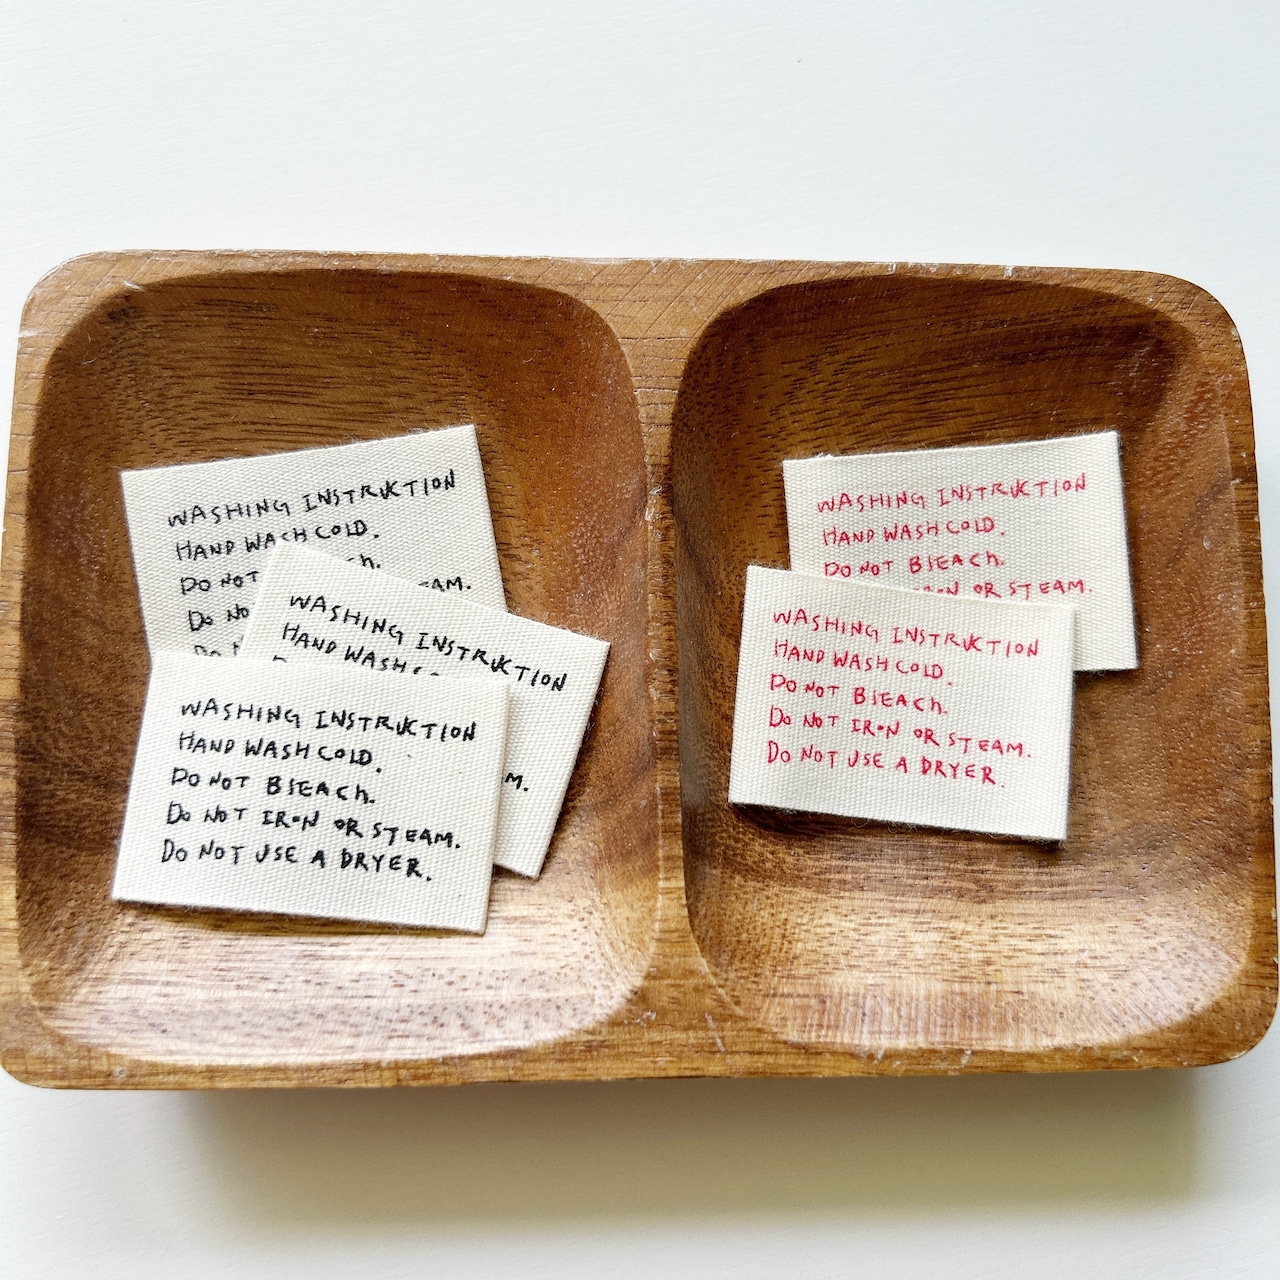 WASHING INSTRUCTION
HAND WASH COLD.
DO NOT
DO
WASHING INSTRUCTION
HAND WASH
WASHING INSTRUCTION
HAND WASH COLD.
DO NOT BlEACh.
DO NOT IRON OR STEAM.
DO NOT USE A DRYER.
WASHING INSTRUCTION
HAND WASH COLD.
DO NOT BlEACh.
OR STEAM.
WASHING INSTRUCTION
HAND WASH COLD.
DO NOT BlEACh.
DO NOT IRON OR STEAM.
DO NOT USE A DRYER.